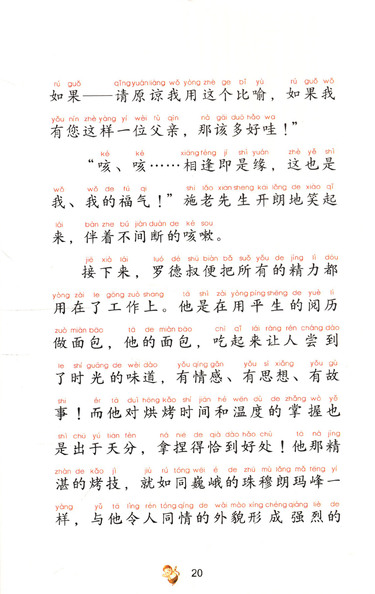 rú guǒ qǐng yuán liàng wǒ yòng zhè ge bǐ yù rú guǒ wǒ
如果——请原谅我用这个比喻，如果我
yǒu nín zhè yàng yí wèi fù qīn nà gāi duō hǎo wa
有您这样一位父亲，那该多好哇！”
ké ké xiāng féng jí shì yuán zhè yě shì
“咳、咳……相逢即是缘，这也是
wǒ wǒ de fú qì shī lǎo xiān sheng kāi lǎng de xiào qǐ
我、我的福气！”施老先生开朗地笑起
lái bàn zhe bú jiàn duàn de ké sou
来，伴着不间断的咳嗽。
jiē xià lái luó dé shū biàn bǎ suǒ yǒu de jīng lì dōu
接下来，罗德叔便把所有的精力都
yòng zài le gōng zuò shang tā shì zài yòng píng shēng de yuè lì
用在了工作上。他是在用平生的阅历
zuò miàn bāo tā de miàn bāo chī qǐ lái ràng rén cháng dào
做面包，他的面包，吃起来让人尝到
le shí guāng de wèi dào yǒu qíng gǎn yǒu sī xiǎng yǒu gù
了时光的味道，有情感、有思想、有故
shi ér tā duì hōng kǎo shí jiān hé wēn dù de zhǎng wò yě
事！而他对烘烤时间和温度的掌握也
shì chū yú tiān fèn ná niē de qià dào hǎo chù tā nà jīng
是出于天分，拿捏得恰到好处！他那精
zhàn de kǎo jì jiù rú tóng wēi é de zhū mù lǎng mǎ fēng yí
湛的烤技，就如同巍峨的珠穆朗玛峰一
yàng yǔ tā lìng rén tóng qíng de wài mào xíng chéng qiáng liè de
样，与他令人同情的外貌形成强烈的
20